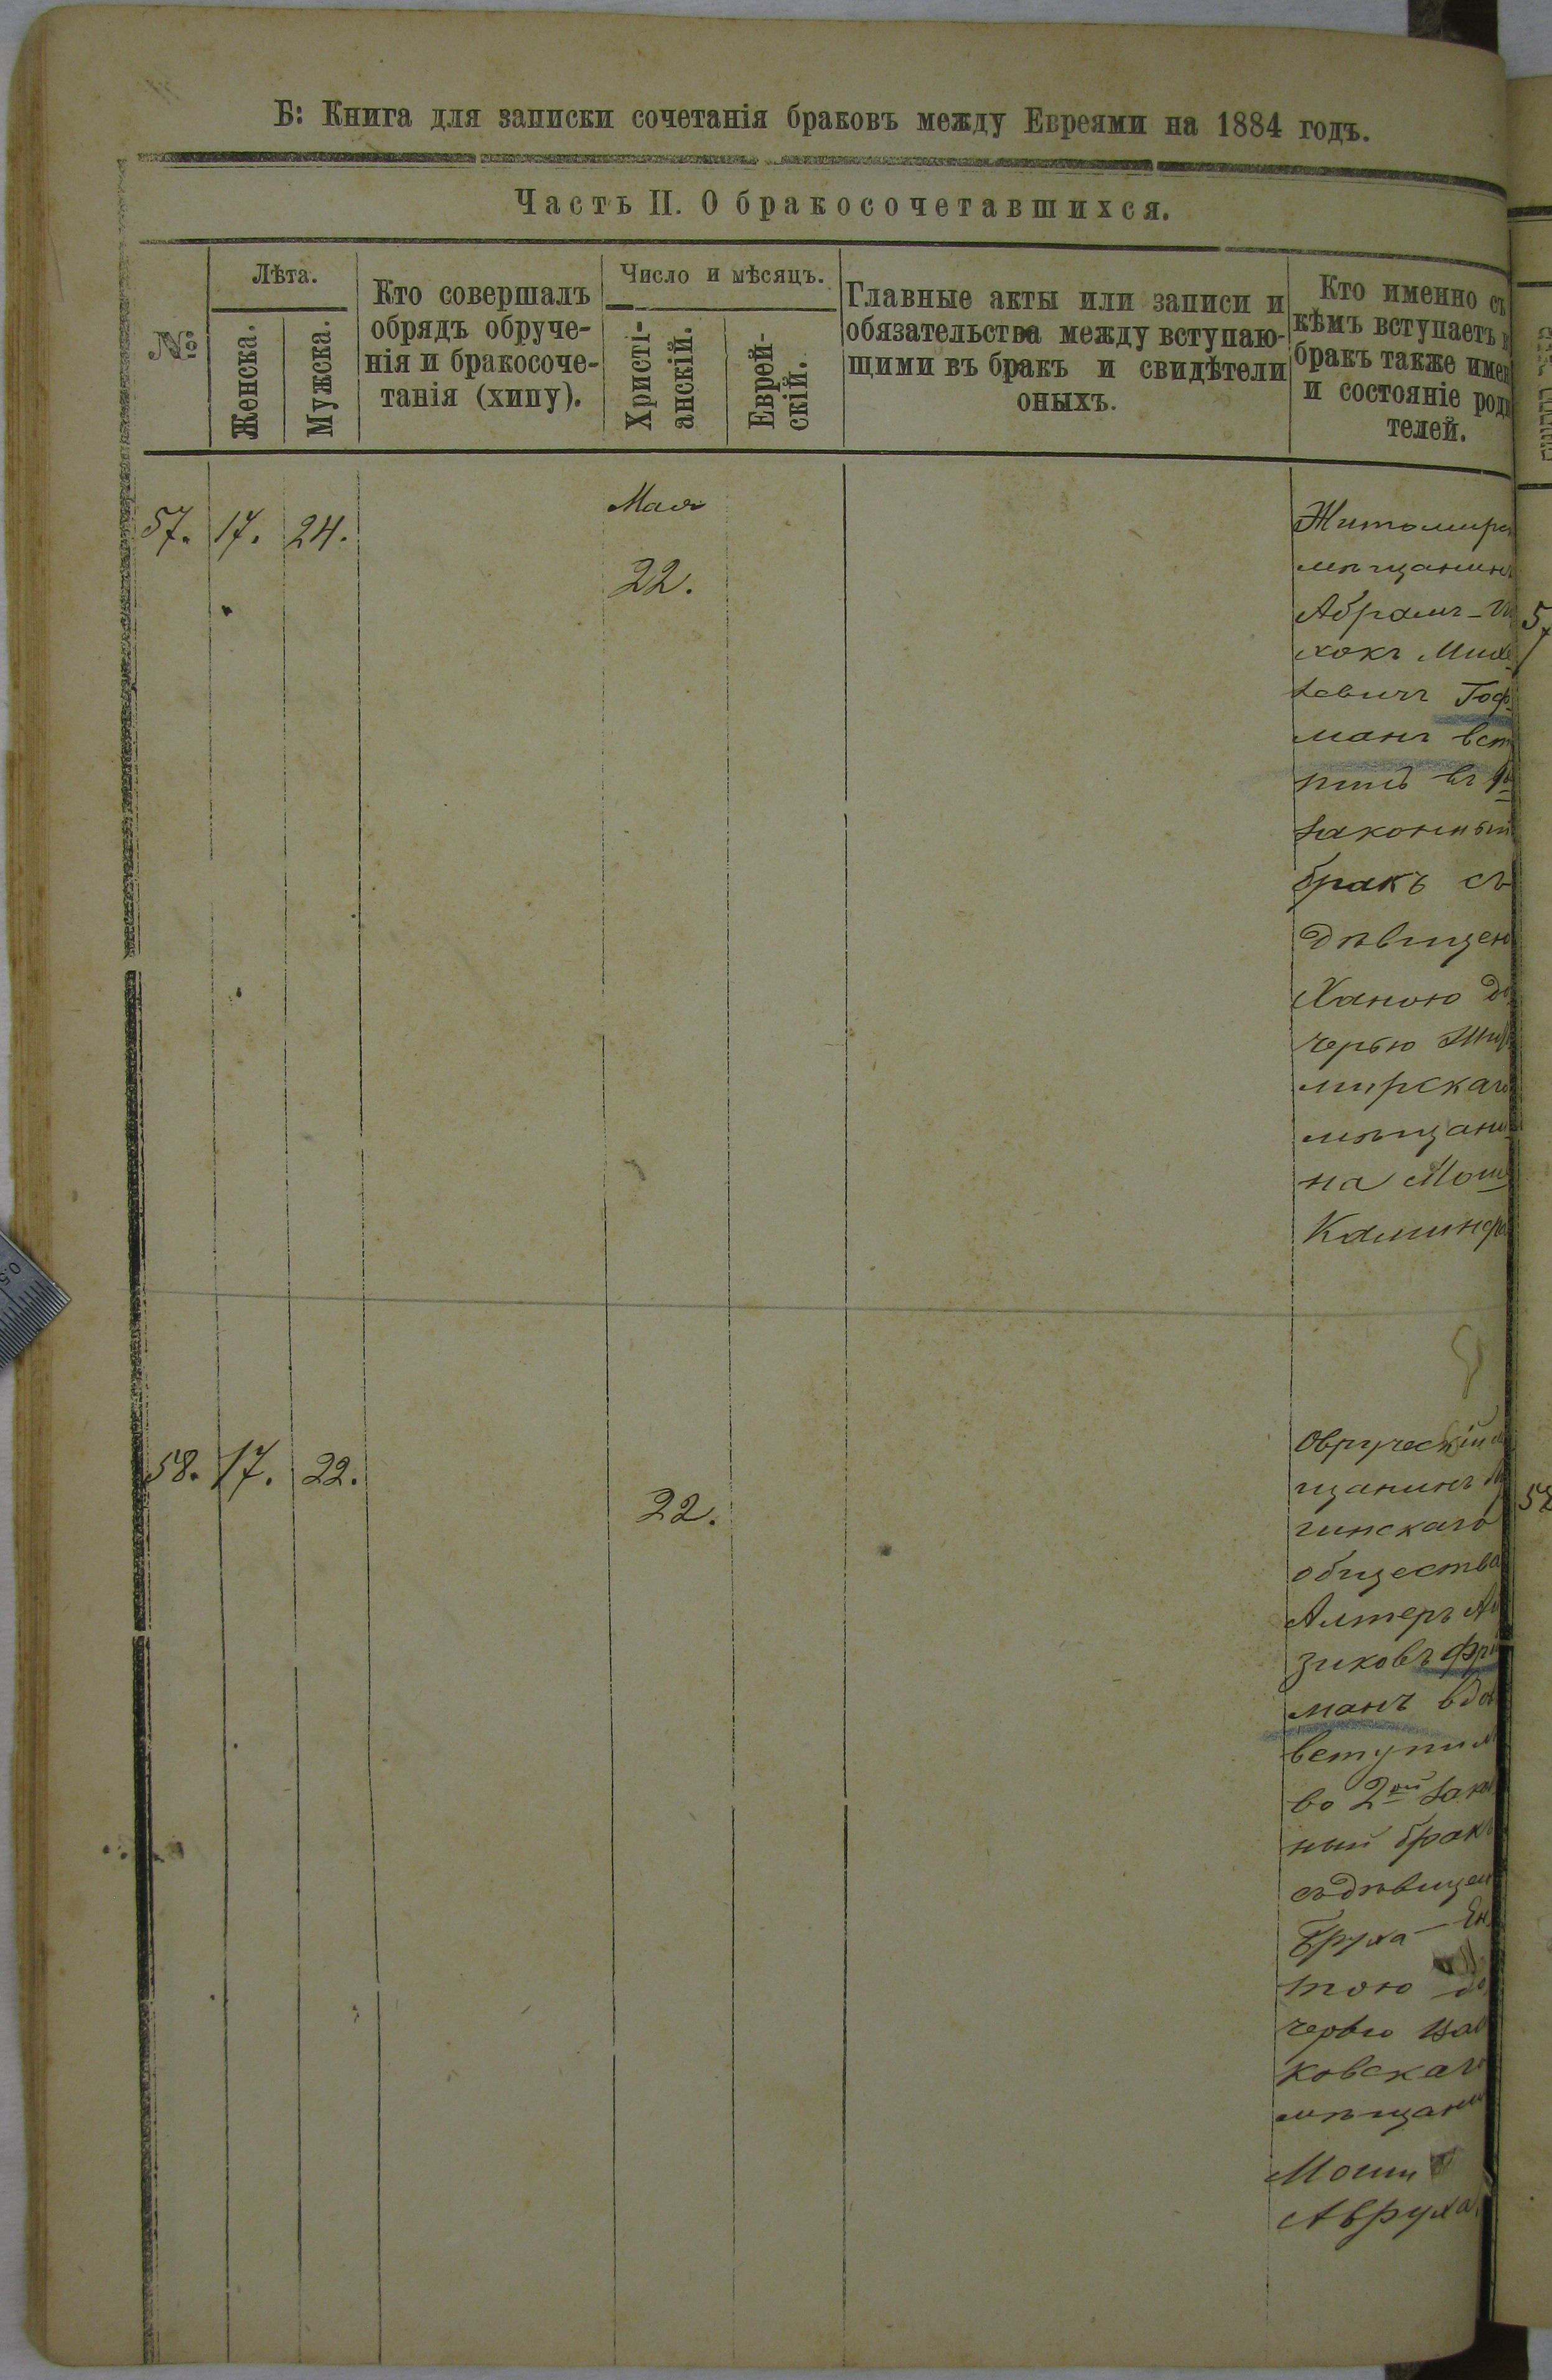 Б: Книга для записки сочетанія браковъ между Евреями на 1884 годъ.
Часть II. О бракосочетавшихся.
№
Лѣта.
Женска.
Мужска.
Кто совершалъ
обрядъ обруче-
нія и бракосоче-
танія (хипу).
Число и мѣсяцъ.
Христі-
анскій.
Еврей-
скій.
Главные акты или записи и
обязательства между вступаю-
щими въ бракъ и свидѣтели
оныхъ.
Кто именно съ
кѣмъ вступаетъ
бракъ также имен
и состояніе роди
телей.
57. 17. 24.
Мая
22.
Житомирс
мѣщанинъ
Абрамъ-
хокъ Михе
левичъ Гоф-
манъ вст
пилъ въ
законный
бракъ съ
дѣвицею
Ханою до
черью Жит
мирскаго
мѣщани
на Мош
58. 17. 22.
22.
Овруческій
щанинъ
гинскаго
общества
Алтеръ
зиковъ Фри
манъ вдов
вступил
во 2ой закон
ный бракъ
съ дѣвицею
Бруха - Ен
тою до
черью
ковскаго
мѣщани
Мошк
Авруха
57
58